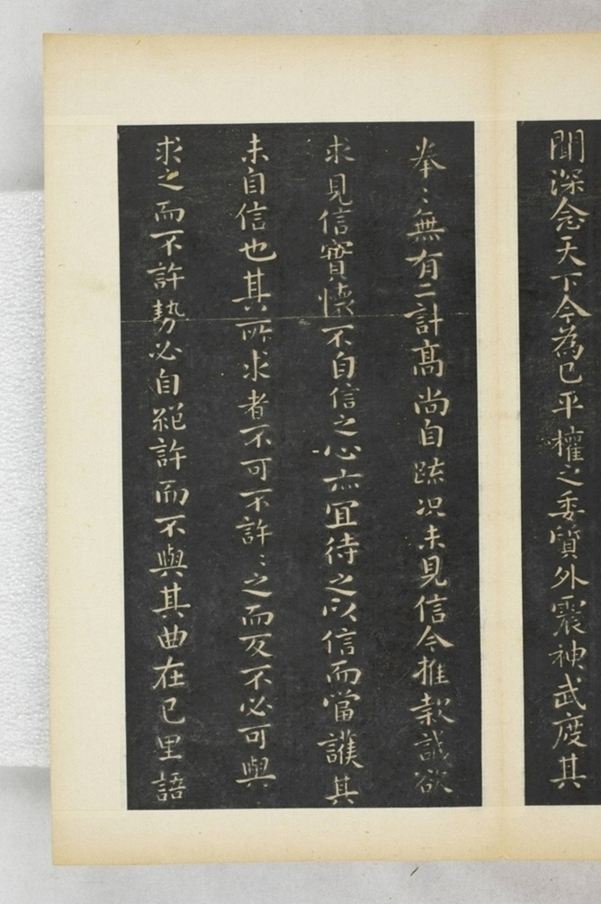 聞深念天下今為已平權之委質外震神武度其
拳〻無有二計高尚自疏况未見信今推款誠欲
求見信實懷不自信之心亦宜待之以信而當護其
未自信也其所求者不可不許〻之而反不必可與
求之而不許勢必自絕許而不與其曲在己里語